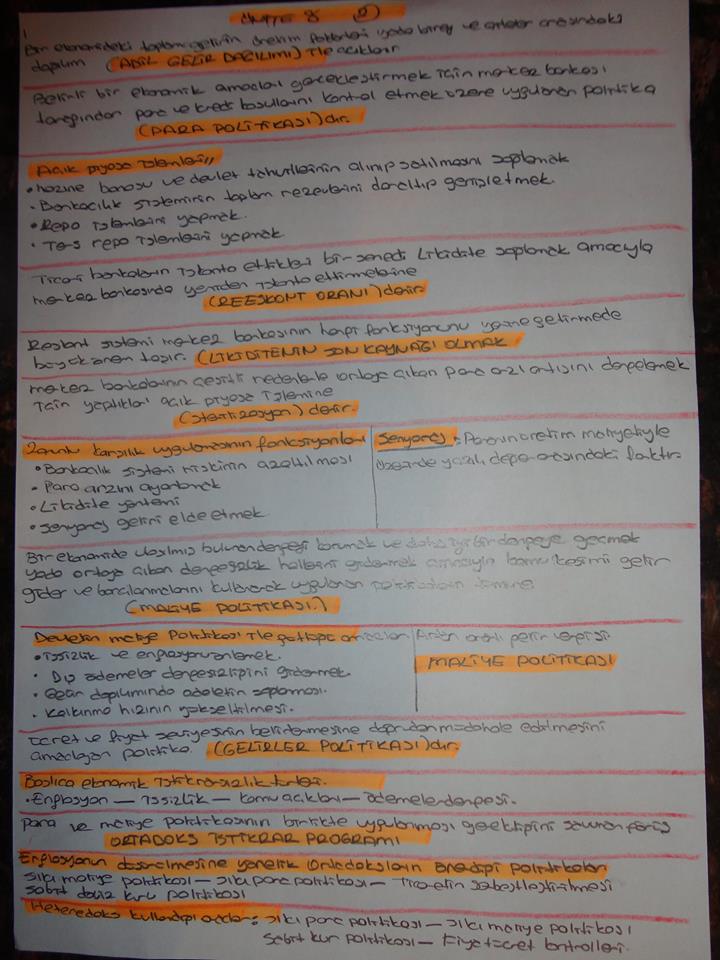 Chapter 8 (2)
Bir ekonomideki toplam gelirin üretim faktörleri yada birey ve aileler arasındaki
dağılım (ADİL GELİR DAĞILIMI) ile açıklanır
Belirli bir ekonomik amaçları gerçekleştirmek için merkez bankası
tarafından para ve kredi koşullarını kontrol etmek üzere uygulanan politika
(PARA POLİTİKASI)dır.
Açık piyasa işlemleri,,
• hazine bonosu ve devlet tahvillerinin alınıp satılmasını sağlamak
• Bankacılık sisteminin toplam rezervlerini daraltıp genişletmek.
• Repo işlemlerini yapmak.
• Ters repo işlemlerini yapmak
Ticari bankaların iskonto ettikleri bir senedi Likidite sağlamak amacıyla
merkez bankasında yeniden iskonto ettirmelerine
(REESKONT ORANI) denir
Reskont sistemi merkez bankasının hangi fonksiyonunu yerine getirmede
büyük önem taşır. (LİKİDİTENİN SON KAYNAĞI OLMAK
merkez bankalarının çeşitli nedenlerle ortaya çıkan para arzı artışını dengelemek
için yaptıkları açık piyasa işlemine
(sterilizasyon) denir.
Zorunlu karşılık uygulamasının fonksiyonları
• Bankacılık sistemi riskinin azaltılması
• Para arzını ayarlamak
• Likidite yöntemi
• Senyoraj geliri elde etmek
Senyoraj: Paranın üretim maliyetiyle
üzerinde yazılı değer arasındaki farktır.
Bir ekonomide ulaşılmış bulunan dengeyi korumak ve daha iyi bir dengeye geçmek
yada ortaya çıkan dengesizlik hallerini gidermek amacıyla kamu kesimi gelir
gider ve borçlanmalarını kullanarak uygulanan politikaların tümüne
(MALİYE POLİTİKASI.)
Devletin maliye Politikası ile güttüğü amaçlar
• işsizlik ve enflasyonu önlemek.
• Dış ödemeler dengesizliğini gidermek
• Gelir dağılımında adaletin sağlaması.
• Kalkınma hızının yükseltilmesi.
Artan oranlı gelir vergisi
MALİYE POLİTİKASI
Ücret ve fiyat seviyesinin belirlenmesine doğrudan müdahale edilmesini
amaçlayan politika. (GELİRLER POLİTİKASI)dır.
Başlıca ekonomik istikrarsızlık türleri.
• Enflasyon — işsizlik — kamu açıkları — ödemeler dengesi.
Para ve maliye politikasının birlikte uygulanması gerektiğini savunan görüş
ORTADOKS İSTİKRAR PROGRAMI
Enflasyonun düşürülmesine yönelik Ortodoksların önerdiği politikalar
sıkı maliye politikası — sıkı para politikası — Ticaretin serbestleştirilmesi
sabit döviz kuru politikası
Heteredoks kullandığı araçlar: sıkı para politikası — sıkı maliye politikası
Sabit kur politikası — Fiyat ücret kontrolleri.